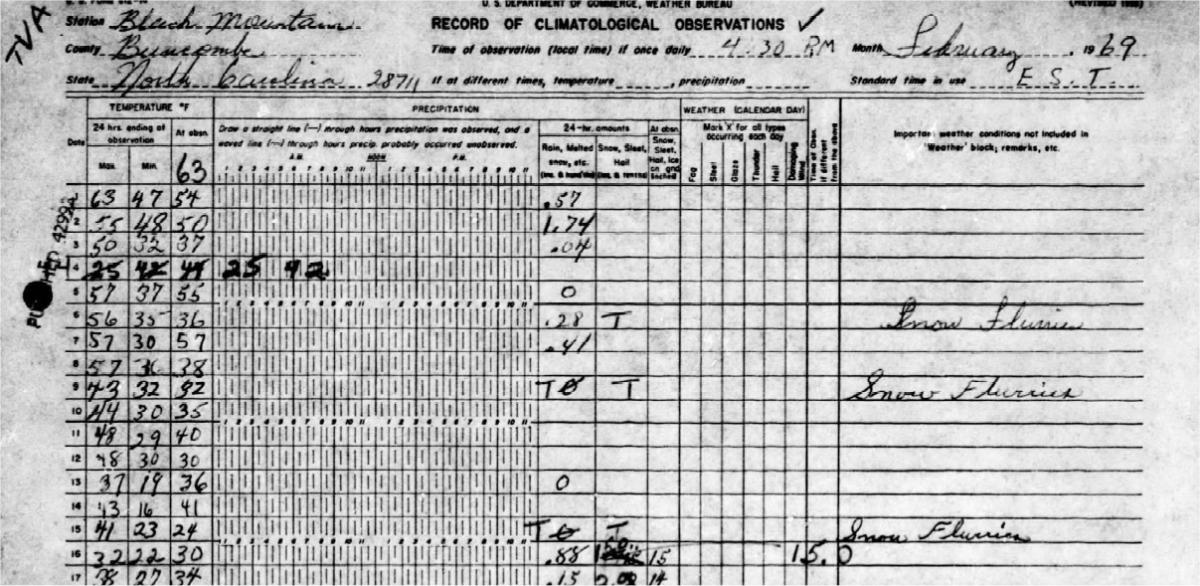 U. S. DEPARTMENT OF COMMERCE, WEATHER BUREAU
TVA
Station Black Mountain RECORD OF CLIMATOLOGICAL OBSERVATIONS ✓
County Buncombe Time of observation (local time) if once daily 4:30 PM Month February 1969
State North Carolina 28711 If at different times, temperature , precipitation Standard time in use E. S. T.
TEMPERATURE °F PRECIPITATION WEATHER (CALENDAR DAY)
Date 24 hrs. ending at observation At obsn. Draw a straight line (—) through hours precipitation was observed, and a waved line through hours precip. probably occurred unobserved. 24-hr. amounts At obsn. Mark 'X' for all types occurring each day Important weather conditions not included in 'Weather' block; remarks, etc.
Max. Min. 63 A.M. NOON P.M. Rain, Melted snow, etc. Snow, Sleet, Hail Snow, Sleet, Hail, Ice on gnd Fog Sleet Glaze Thunder Hail Damaging Wind Time of Obsn. if different from the above
1 2 3 4 5 6 7 8 9 10 11 1 2 3 4 5 6 7 8 9 10 11
63 47 54 .57
2 55 48 50 1.74
3 50 32 37 .04
4 25 42 25 42
5 57 37 55 0
6 56 35 36 .28 T Snow Flurries
7 57 30 57 .41
8 57 38
9 43 32 32 T T Snow Flurries
10 44 30 35
11 48 29 40
12 48 30 30
13 37 19 36 0
14 43 16 41
15 41 23 24 T T Snow Flurries
16 32 22 30 .88 15 15.0
17 38 27 34 .15 14